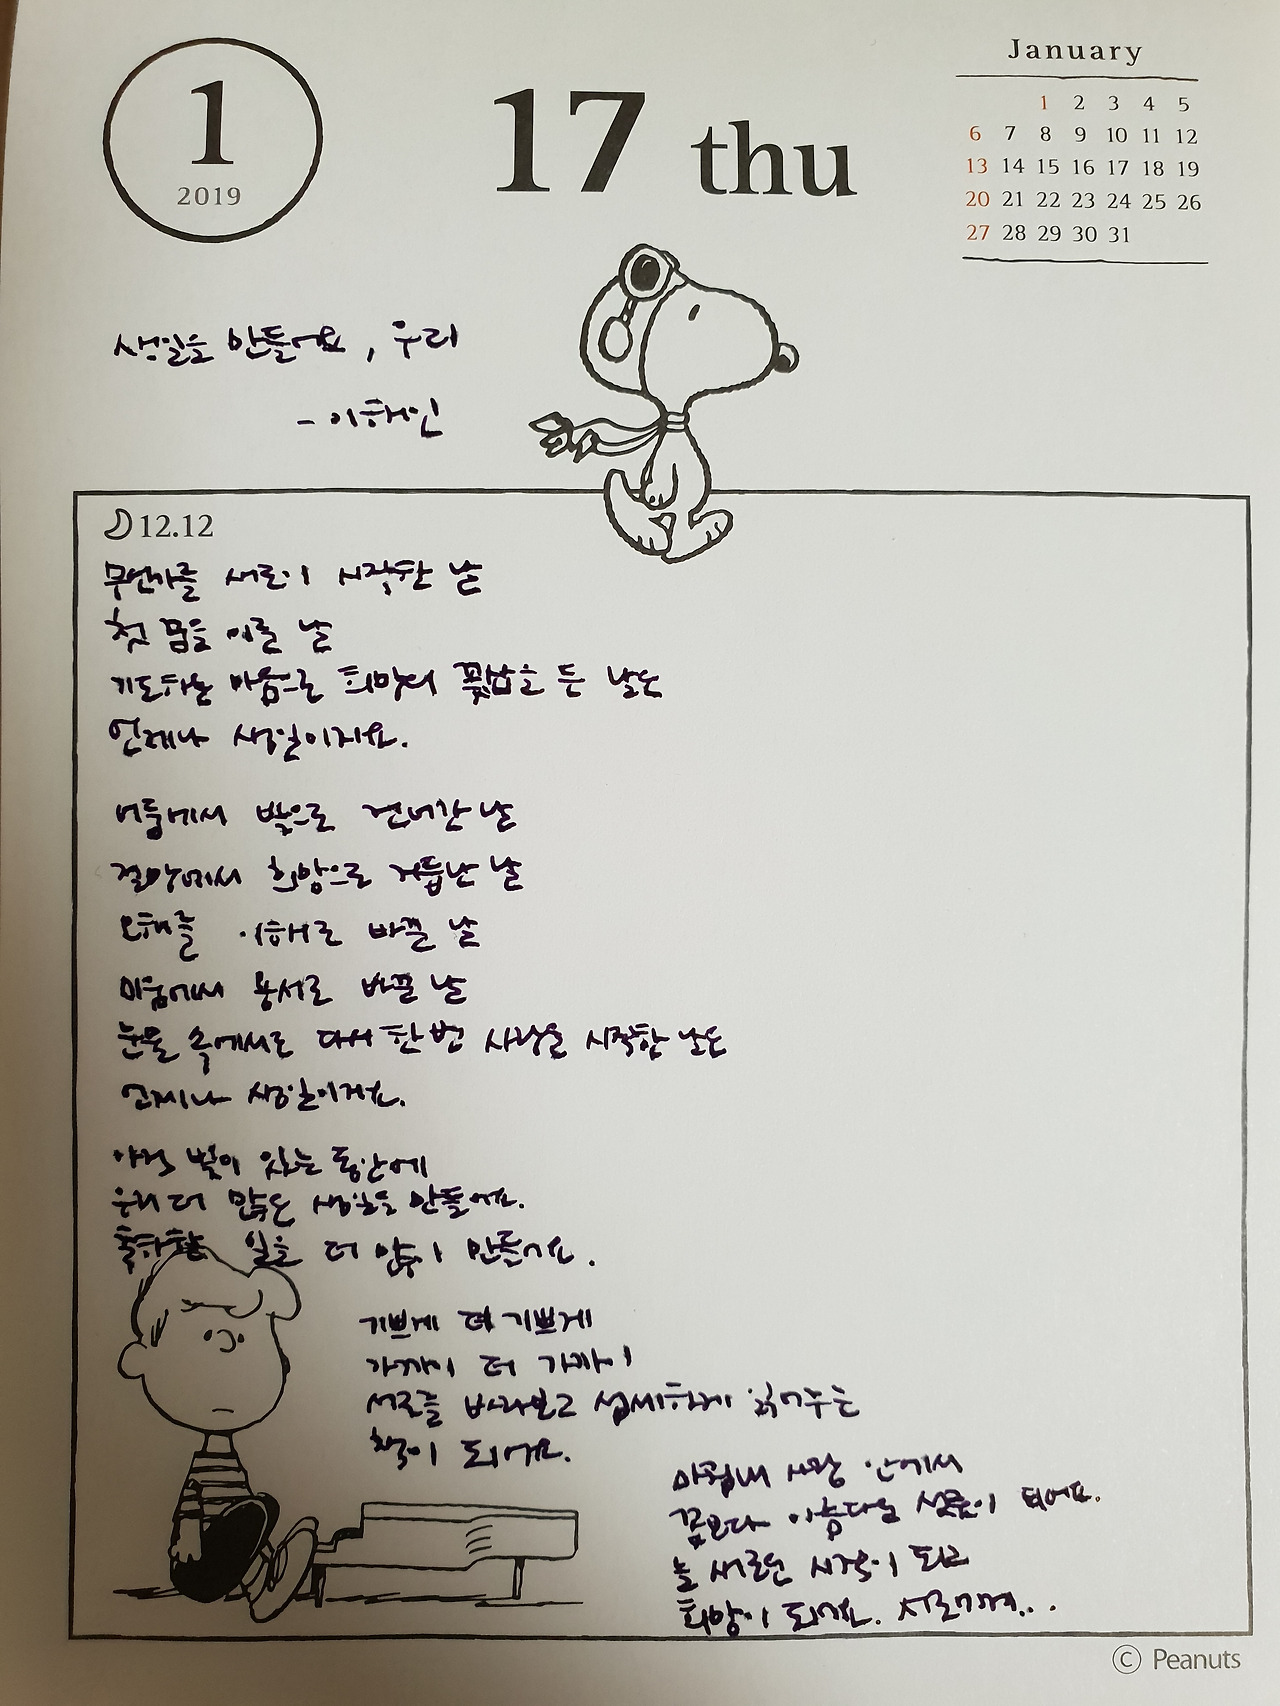 1
2019
17 thu
January
1 2 3 4 5
6 7 8 9 10 11 12
13 14 15 16 17 18 19
20 21 22 23 24 25 26
27 28 29 30 31
생일을 만들어요, 우리
- 이해인
12.12
무언가를 새로이 시작한 날
첫 꿈을 이룬 날
기도하는 마음으로 희망의 꽃삽을 든 날은
언제나 생일이지요.
어둠에서 빛으로 건너간 날
절망에서 희망으로 거듭난 날
오해를 이해로 바꾼 날
미움에서 용서로 바꾼 날
눈물 속에서도 다시 한번 사랑을 시작한 날은
언제나 생일이지요.
아직 빛이 있는 동안에
우리 더 많은 생일을 만들어요.
축하할 일을 더 많이 만들어요.
기쁘게 더 기쁘게
가까이 더 가까이
서로를 바라보고 섬세하게 읽어주는
책이 되어요.
마침내 사랑 안에서
꿈보다 아름다운 선물이 되어요.
늘 새로운 시작이 되고
희망이 되어요. 서로에게..
© Peanuts